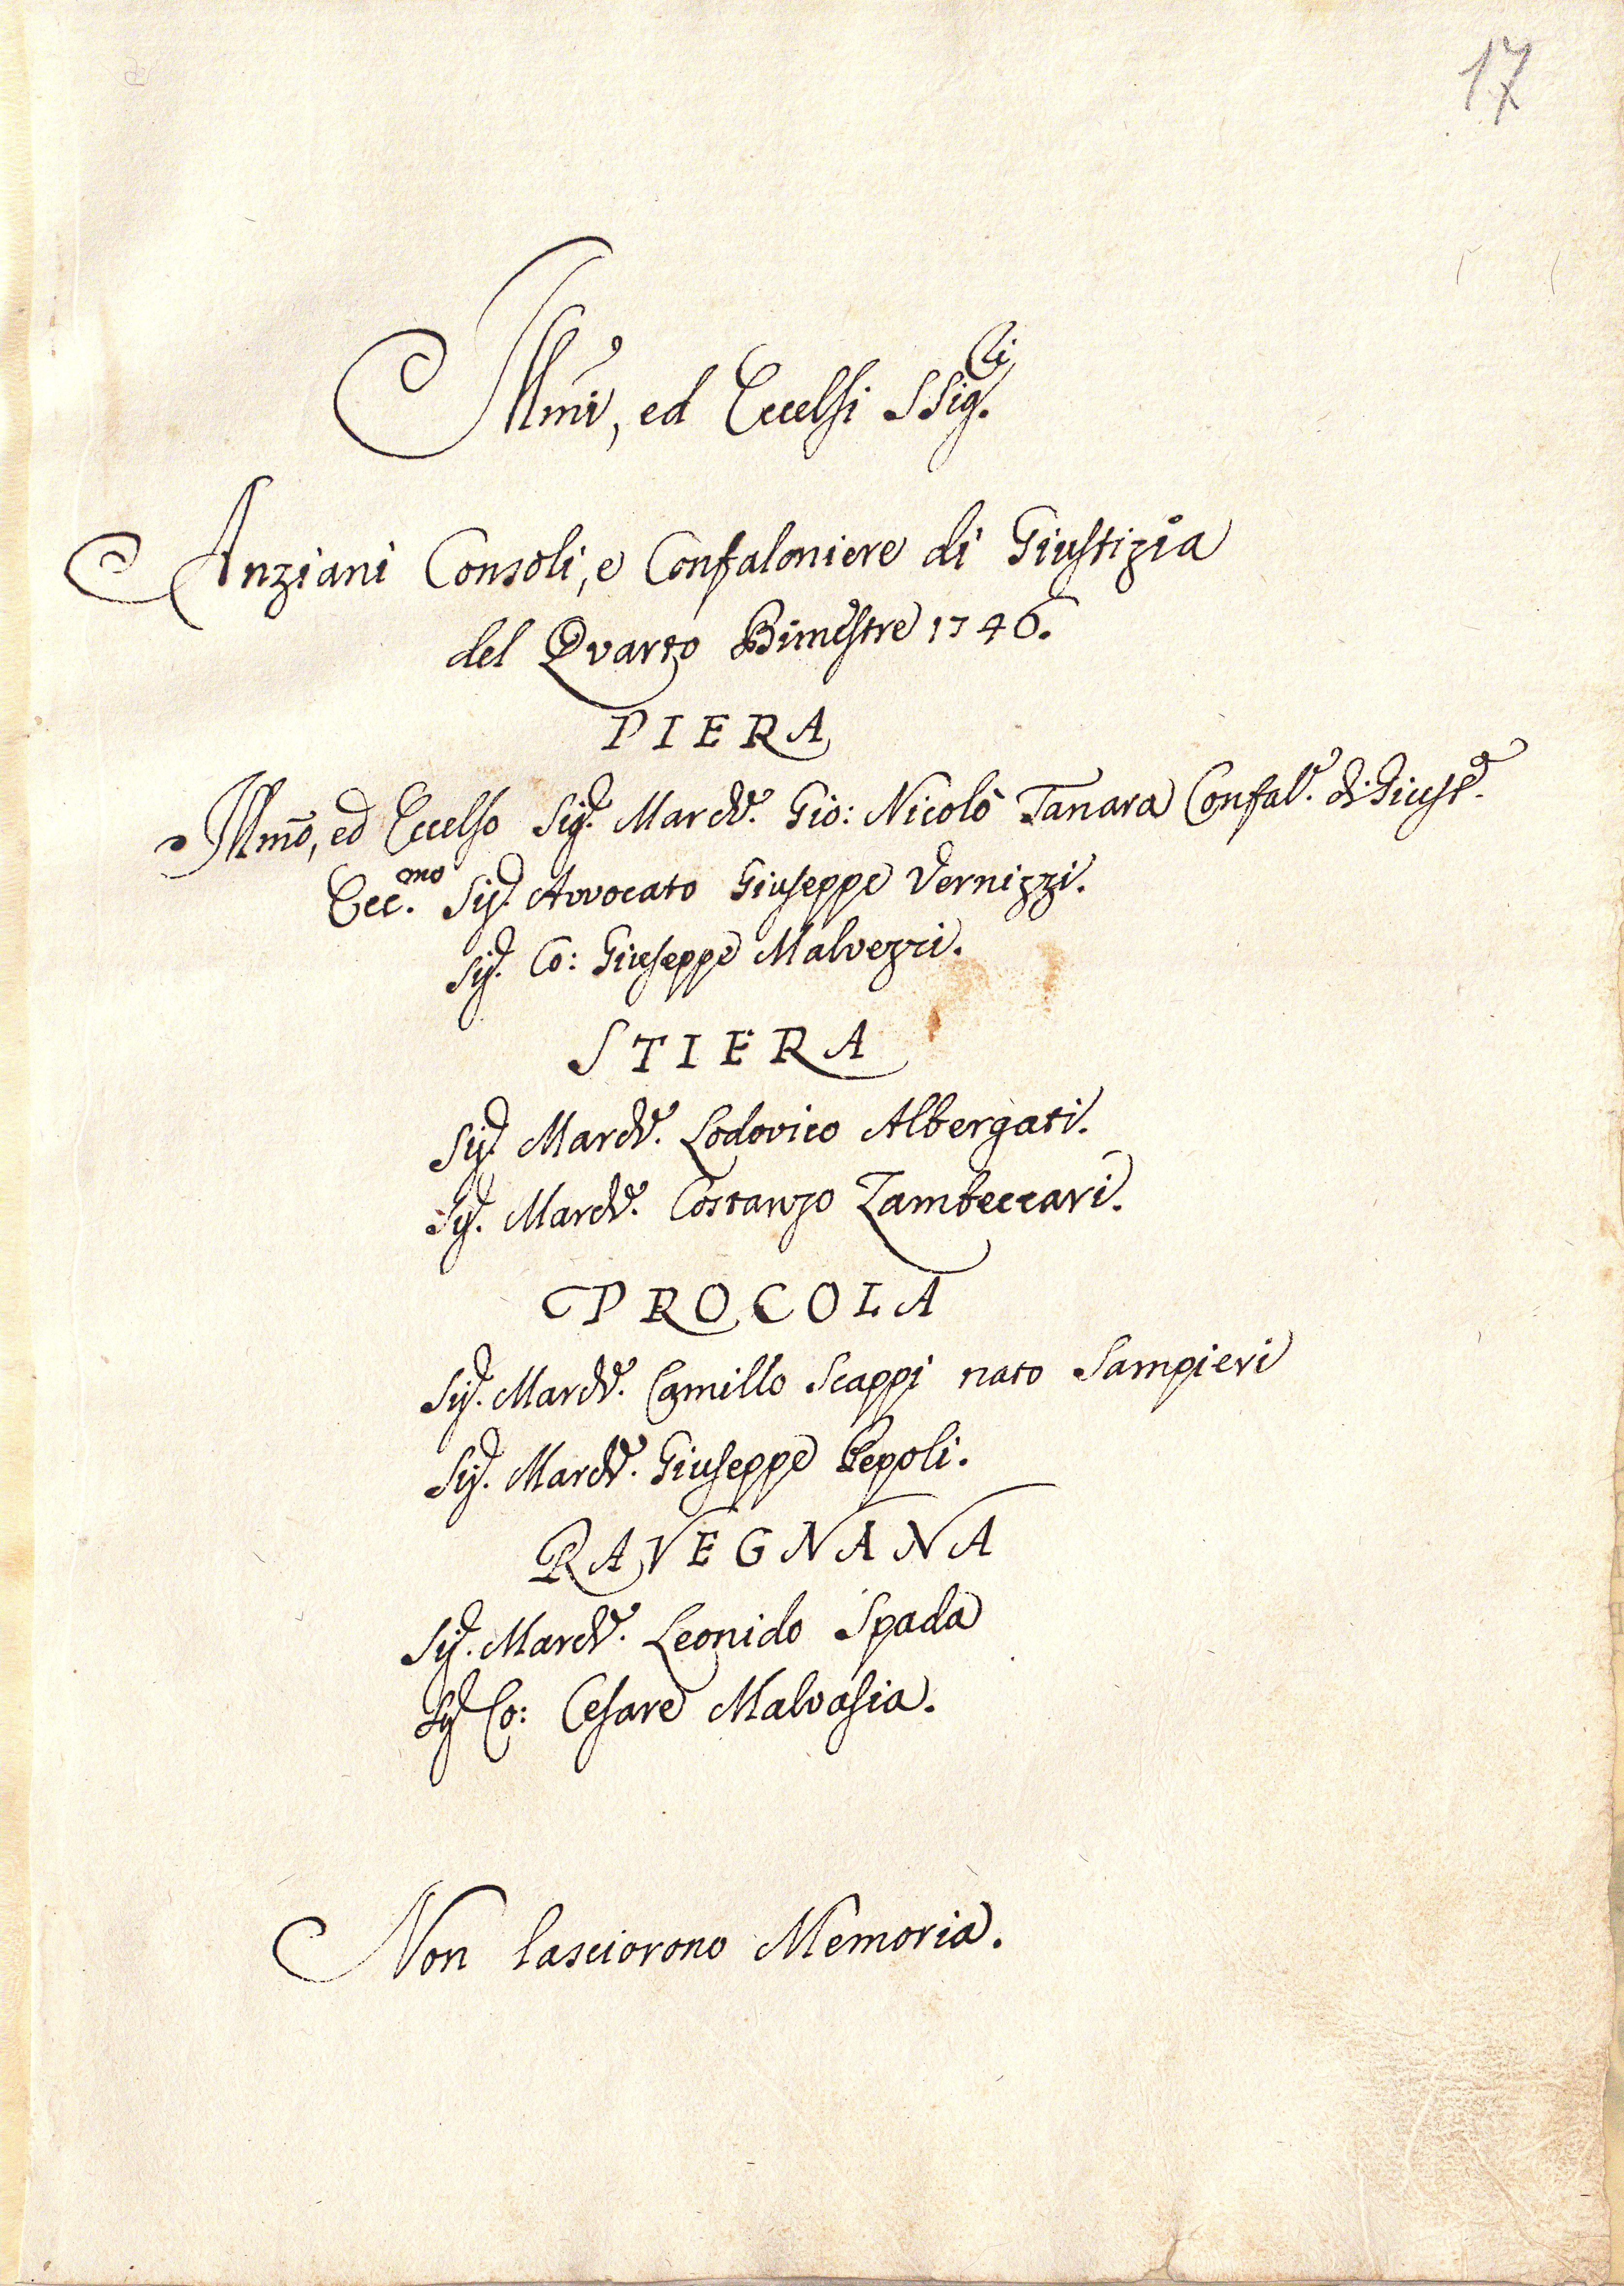 17
Illmi, ed Eccelsi SSig.ri
Anziani Consoli, e Confaloniere di Giustizia
del Quarto Bimestre 1746.
PIERA
Illmo, ed Eccelso Sig.r March.e Gio: Nicolò Tanara Confal.e di Giust.a
Ecc.mo Sig.r Avvocato Giuseppe Vernizzi.
Sig.r Co: Giuseppe Malvezzi.
STIERA
Sig.r March.e Lodovico Albergati.
Sig.r March.e Costanzo Zambeccari.
PROCOLA
Sig.r March.e Camillo Scappi nato Sampieri
Sig.r March.e Giuseppe Pepoli.
RAVEGNANA
Sig.r March.e Leonido Spada
Sig.r Co: Cesare Malvasia.
Non lasciorono Memoria.